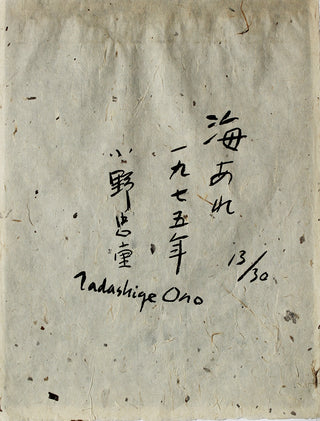 海あれ
一九七五年
小野忠重
13/30
Tadashige Ono